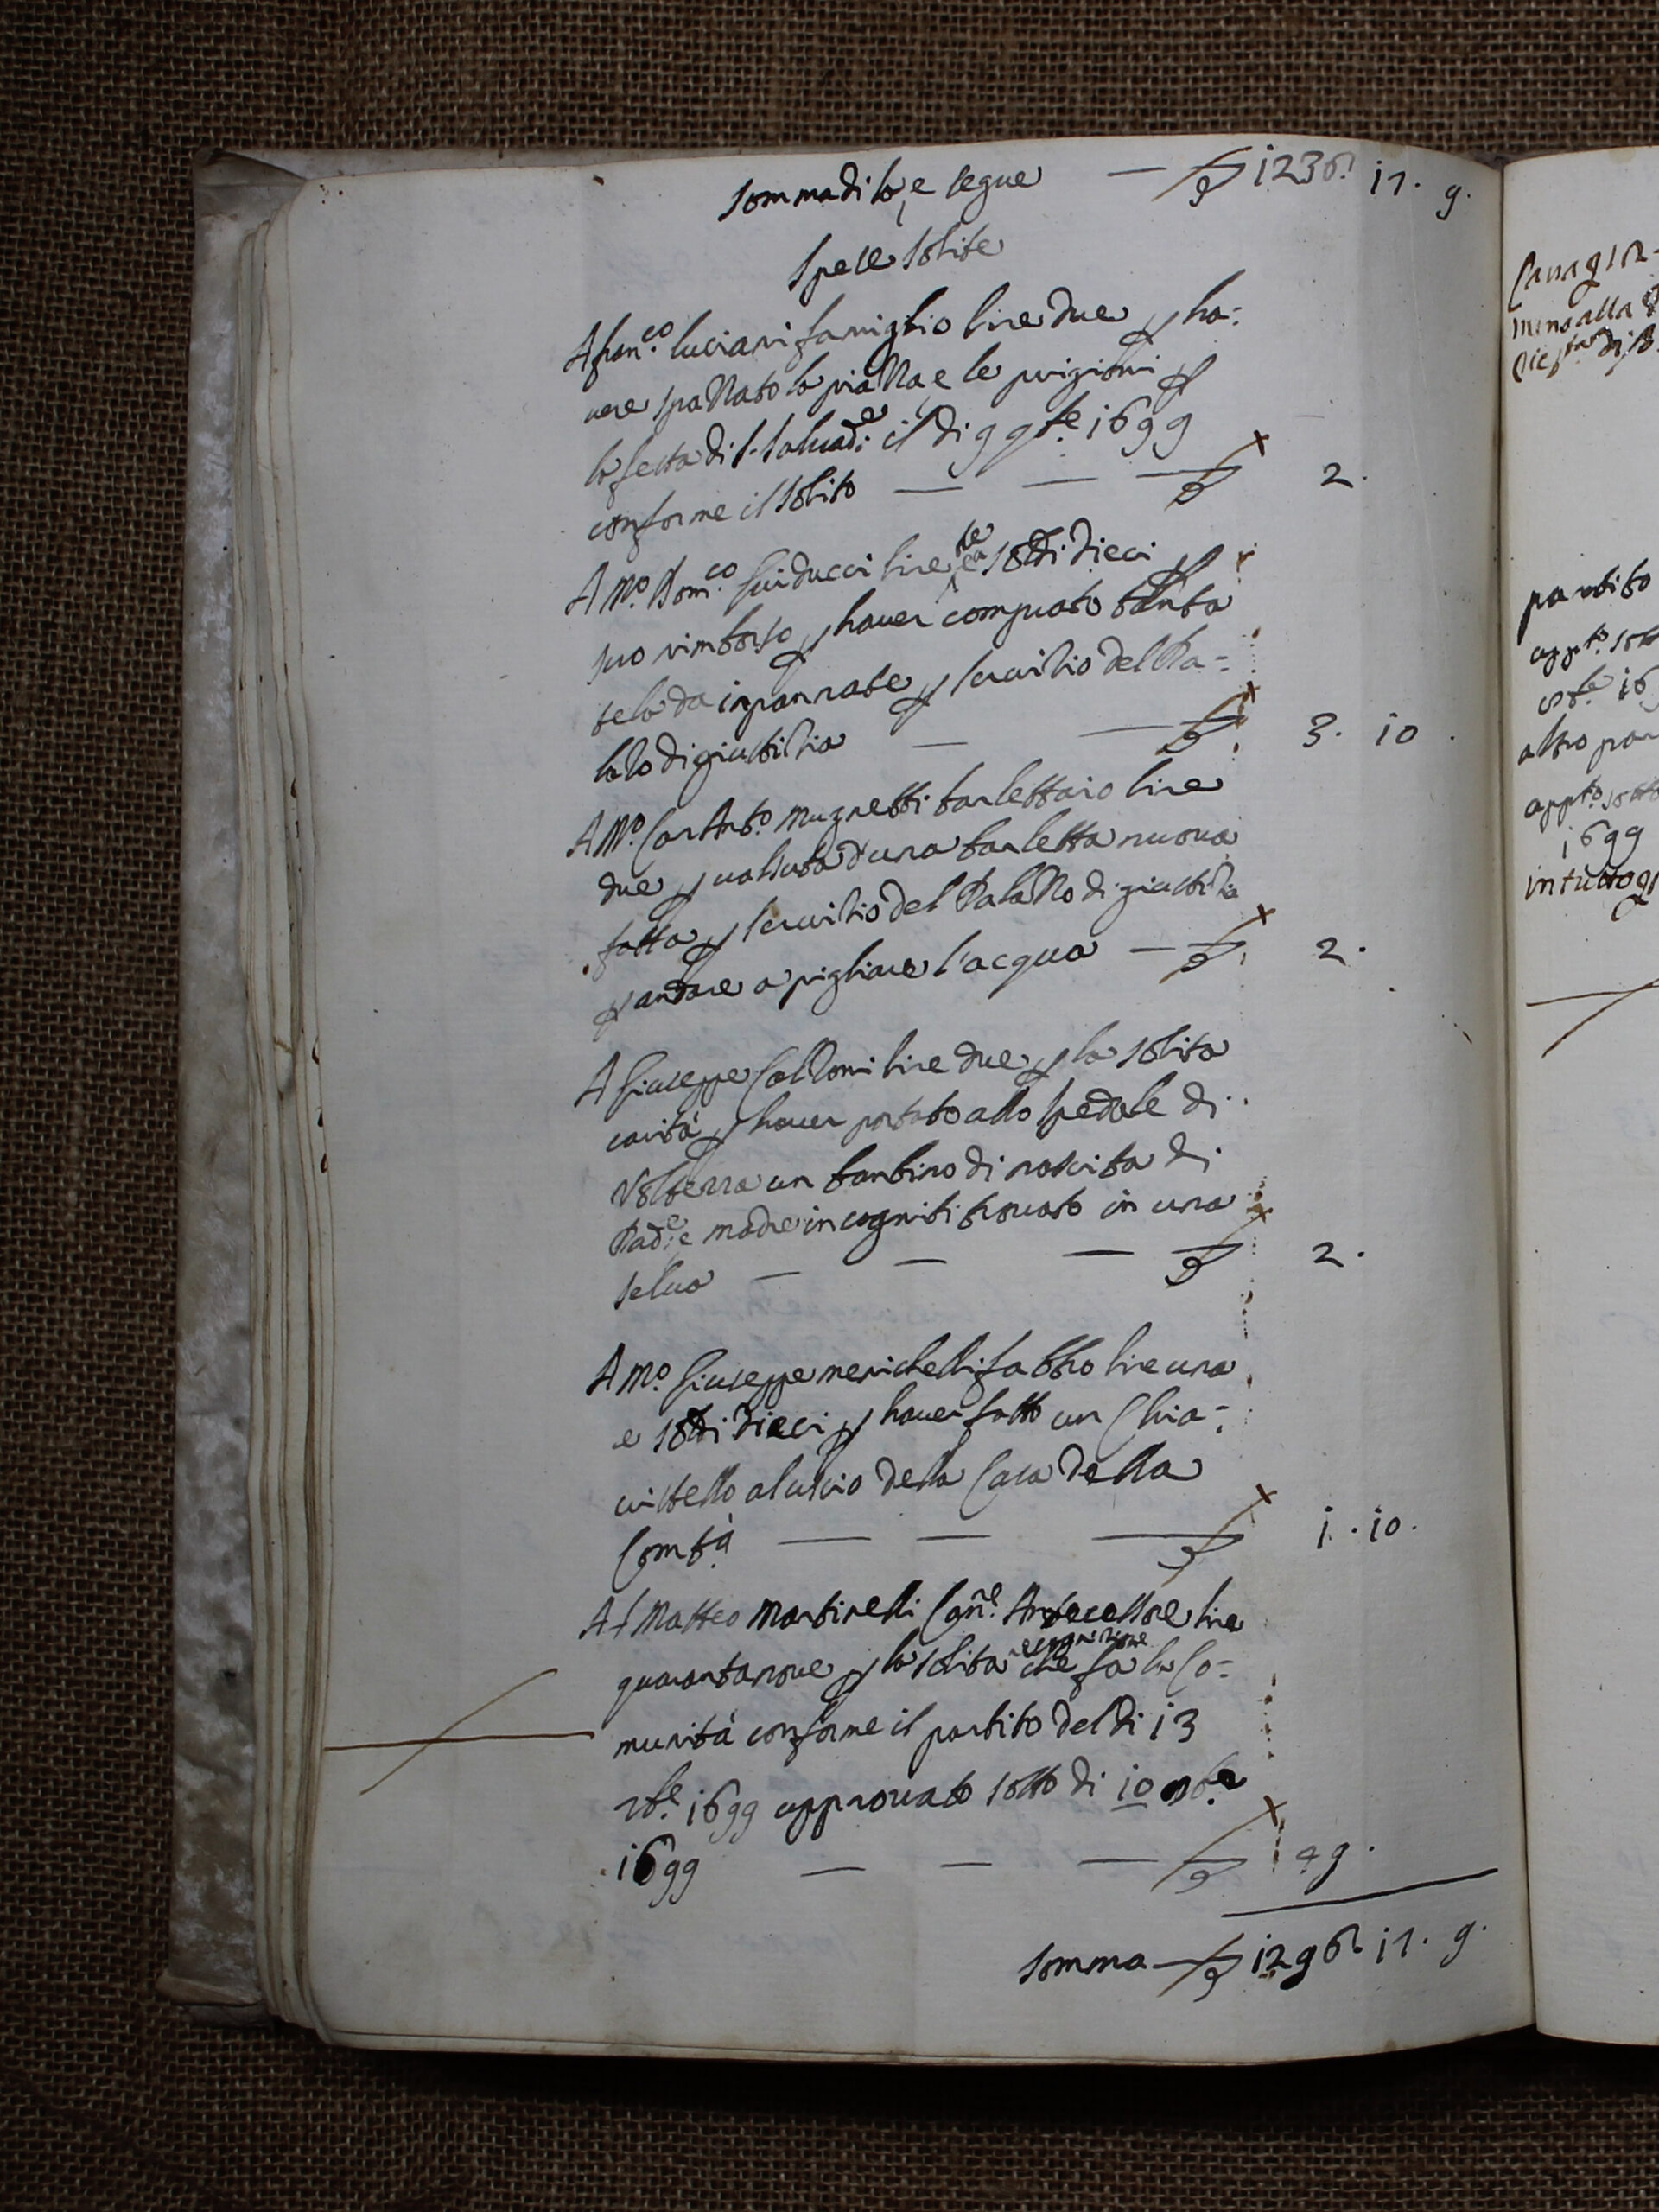 somma di là, e segue — £ 1236. 17. 9.
Spese solite
A Fran.co luciani famiglio lire due p ha=
vere spazzato la piazza, e le prigioni p
la festa di S. Salvad.e il di 9 9bre 1699
conforme il solito — — — £ 2.
A M.o Dom.co Guiducci lire tre e soldi dieci p
suo rimborso p haver comprato tanta
tela da inpannate p servitio del Pa=
lazo di giustitia — — £ 3. 10.
A M.o Car Ant.o Mugnetti barlettaio lire
due p valsuta d'una barletta nuova
fatta p servitio del Palazzo di giustitia
p andare a pigliare l'acqua — £ 2.
A Giuseppe lire due p la solita
carità p haver portato allo spedale di
Volterra un banbino di nascita di
Pad.e e madre incogniti trovato in una
selva — — — £ 2.
A M.o Giuseppe menichelli fabbro lire una
e soldi dieci p haver fatto un Chia=
vistello al uscio della Casa della
Com.tà — — — £ 1. 10.
A S Matteo Martinelli Canc.re Antecessore lire
quarantanove p la solita recognitione che fa la Co=
munità conforme il partito del di 13
7bre 1699 approvato sotto di 10 8bre
1699 — — — £ 49.
Somma — £ 1296 17. 9.
partito
1699